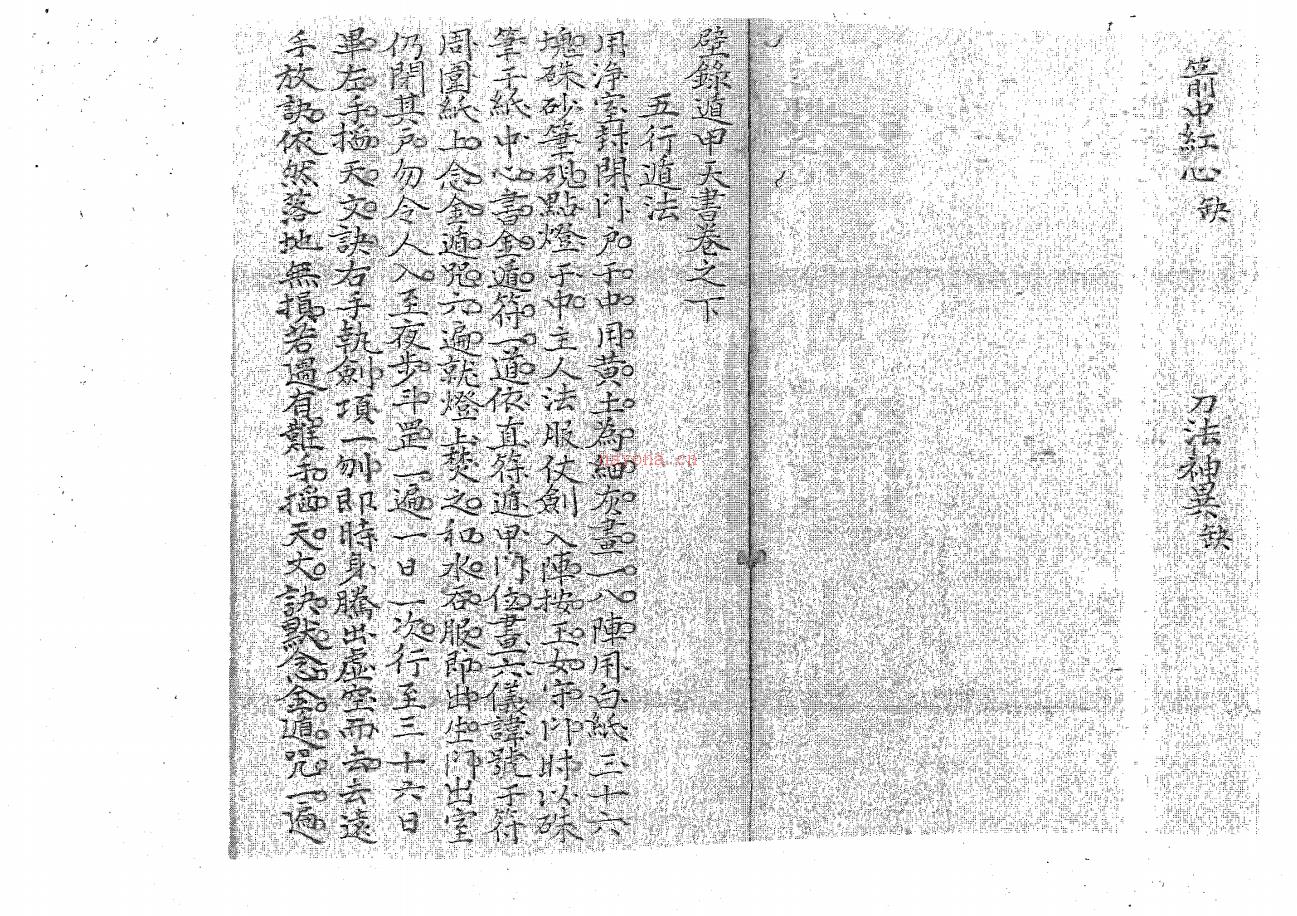 箭中紅心 缺
刀法神異 缺
壁錄遁甲天書卷之下
五行遁法
用淨室封閉門戶于中用黃土為細灰畫一八陣用白紙三十六
塊硃砂筆硯點燈于中主人法服仗劍入陣按玉女守門時以硃
筆于紙中心書金遁符一道依直符遁甲門位畫六儀諱號于符
周圍紙上念金遁咒六遍就燈上焚之和水吞服即出生門出室
仍閉其戶勿令人入至夜步斗罡一遍一日一次行至三十六日
畢左手掐天文訣右手執劍項一刎即時身騰出虛空而去去遠
手放訣依然落地無損若遇有難手掐天文訣默念金遁咒一遍
nayona.cn